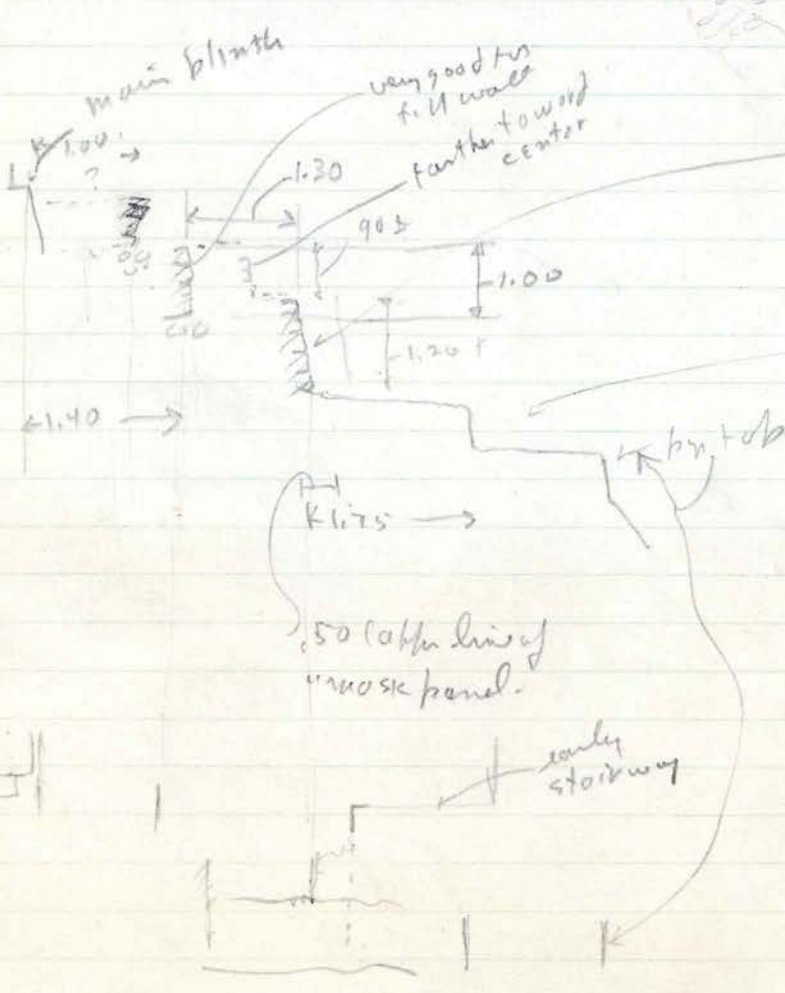 main plinth
very good tus
fill wall
farther toward
center
1.00
?
1.30
90±
1.00
1.20 +
1.40
1.75
.50 (appr line of
"mask panel.
early
stairway